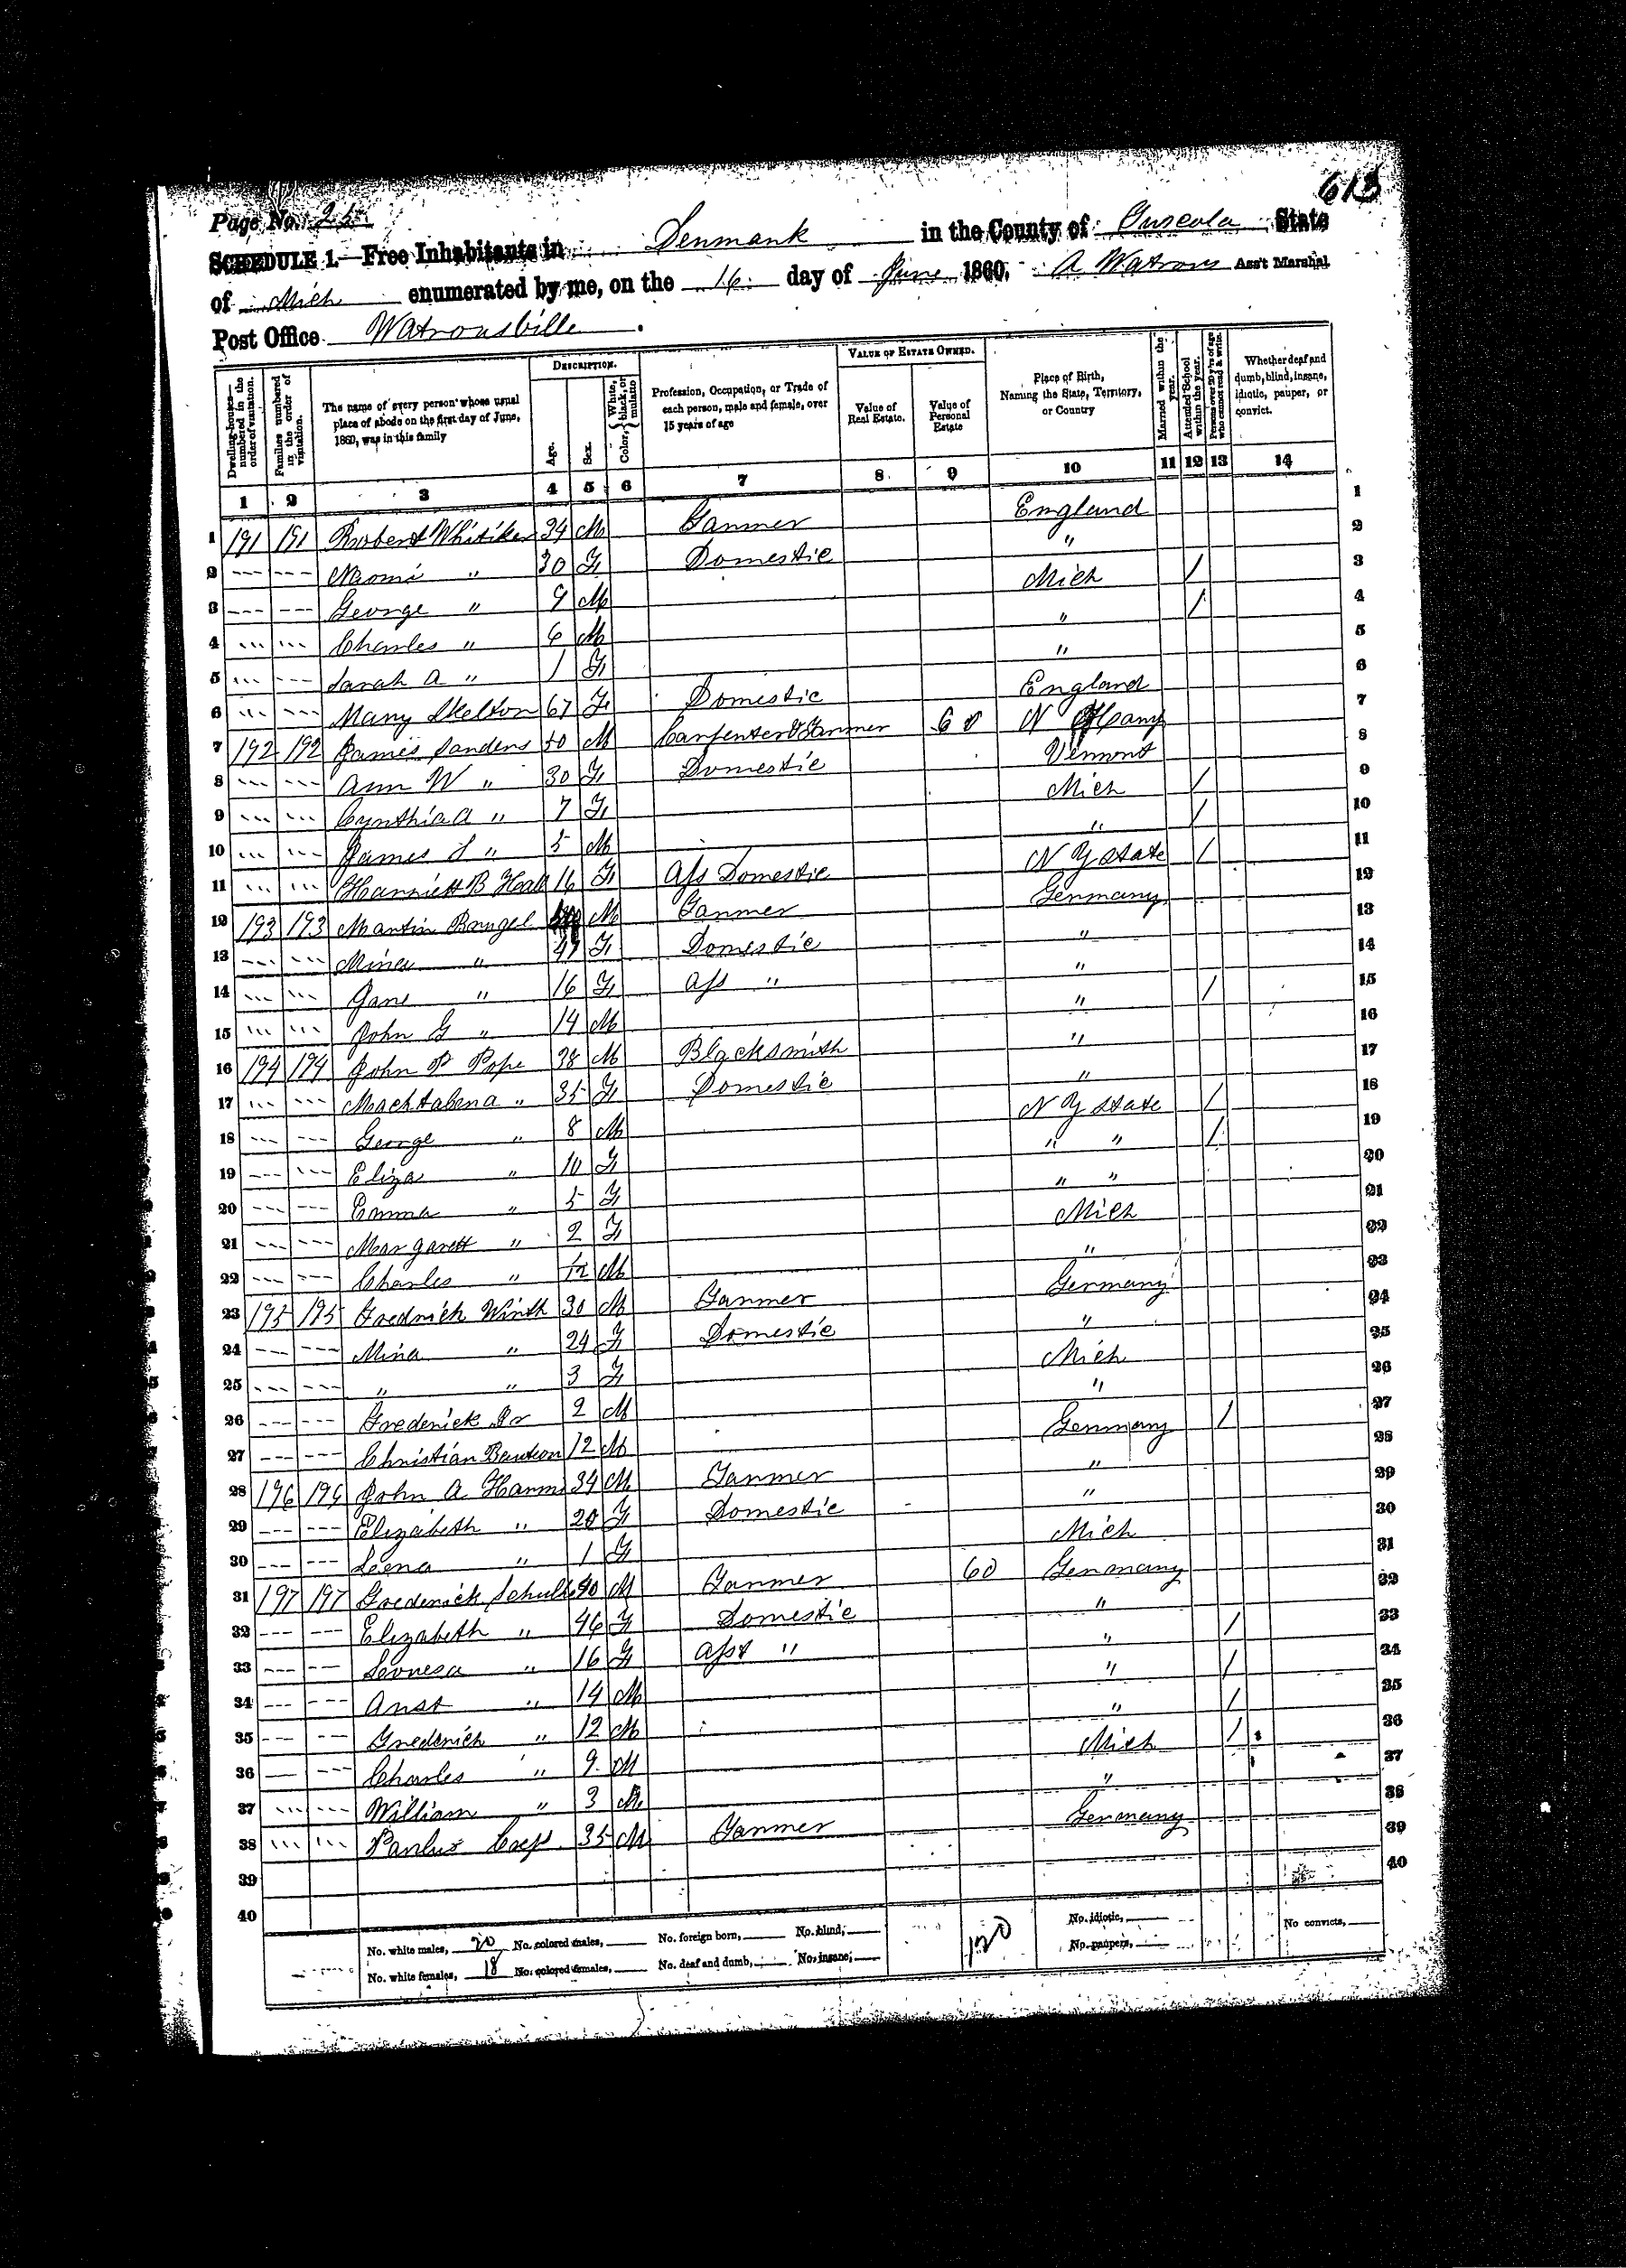 613
Page No. 25
SCHEDULE 1.—Free Inhabitants in Denmark in the County of Tuscola State
of Mich enumerated by me, on the 16 day of June 1860. A Watrous Ass't Marshal
Post Office Watrousville
Dwelling-houses—numbered in the order of visitation.
Families numbered in the order of visitation.
The name of every person whose usual place of abode on the first day of June, 1860, was in this family
DESCRIPTION.
Age.
Sex.
Color, White, black, or mulatto
Profession, Occupation, or Trade of each person, male and female, over 15 years of age
VALUE OF ESTATE OWNED.
Value of Real Estate.
Value of Personal Estate
Place of Birth, Naming the State, Territory, or Country
Married within the year.
Attended School within the year.
Persons over 20 y'rs of age who cannot read & write.
Whether deaf and dumb, blind, insane, idiotic, pauper, or convict.
1 2 3 4 5 6 7 8 9 10 11 12 13 14
1 191 191 Robert Whitiker 34 M Farmer England 1
2 Naomi " 30 F Domestic " 2
3 George " 9 M Mich / 3
4 Charles " 6 M " / 4
5 Sarah A " 1 F " 5
6 Mary Skelton 67 F Domestic England 6
7 192 192 James Sanders 40 M Carpenter & Farmer 60 N Hamp 7
8 Ann W " 30 F Domestic Vermont 8
9 Cynthia A " 7 F Mich / 9
10 James S " 5 M " / 10
11 Harriett B Hall 16 F Ass Domestic N Y State / 11
12 193 193 Martin M Farmer Germany 12
13 Mina " 47 F Domestic " 13
14 Jane " 16 F Ass " " 14
15 John G " 14 M " / 15
16 194 194 John P Pope 38 M Blacksmith " 16
17 Machtalena " 35 F Domestic " 17
18 George " 8 M N Y State / 18
19 Eliza " 10 F " " / 19
20 Emma " 5 F " " 20
21 Margarett " 2 F Mich 21
22 Charles " M " 22
23 195 195 Fredrich Wirth 30 M Farmer Germany 23
24 Mina " 24 F Domestic " 24
25 " " 3 F Mich 25
26 Frederick Jr 2 M " 26
27 Christian 12 M Germany / 27
28 196 196 John A Harms 34 M Farmer " 28
29 Elizabeth " 20 F Domestic " 29
30 Leena " 1 F Mich 30
31 197 197 Frederick Schulte M Farmer 60 Germany 31
32 Elizabeth " 46 F Domestic " 32
33 " 16 F Asst " " / 33
34 Anst " 14 M " / 34
35 Frederich " 12 M " / 35
36 Charles " 9 M Mich / 36
37 William " 3 M " 37
38 Paulus 35 M Farmer Germany 38
39 39
40 40
No. white males, 20 No. colored males, No. foreign born, No. blind, 120 No. idiotic, No convicts,
No. white females, 18 No. colored females, No. deaf and dumb, No. insane, No. paupers,